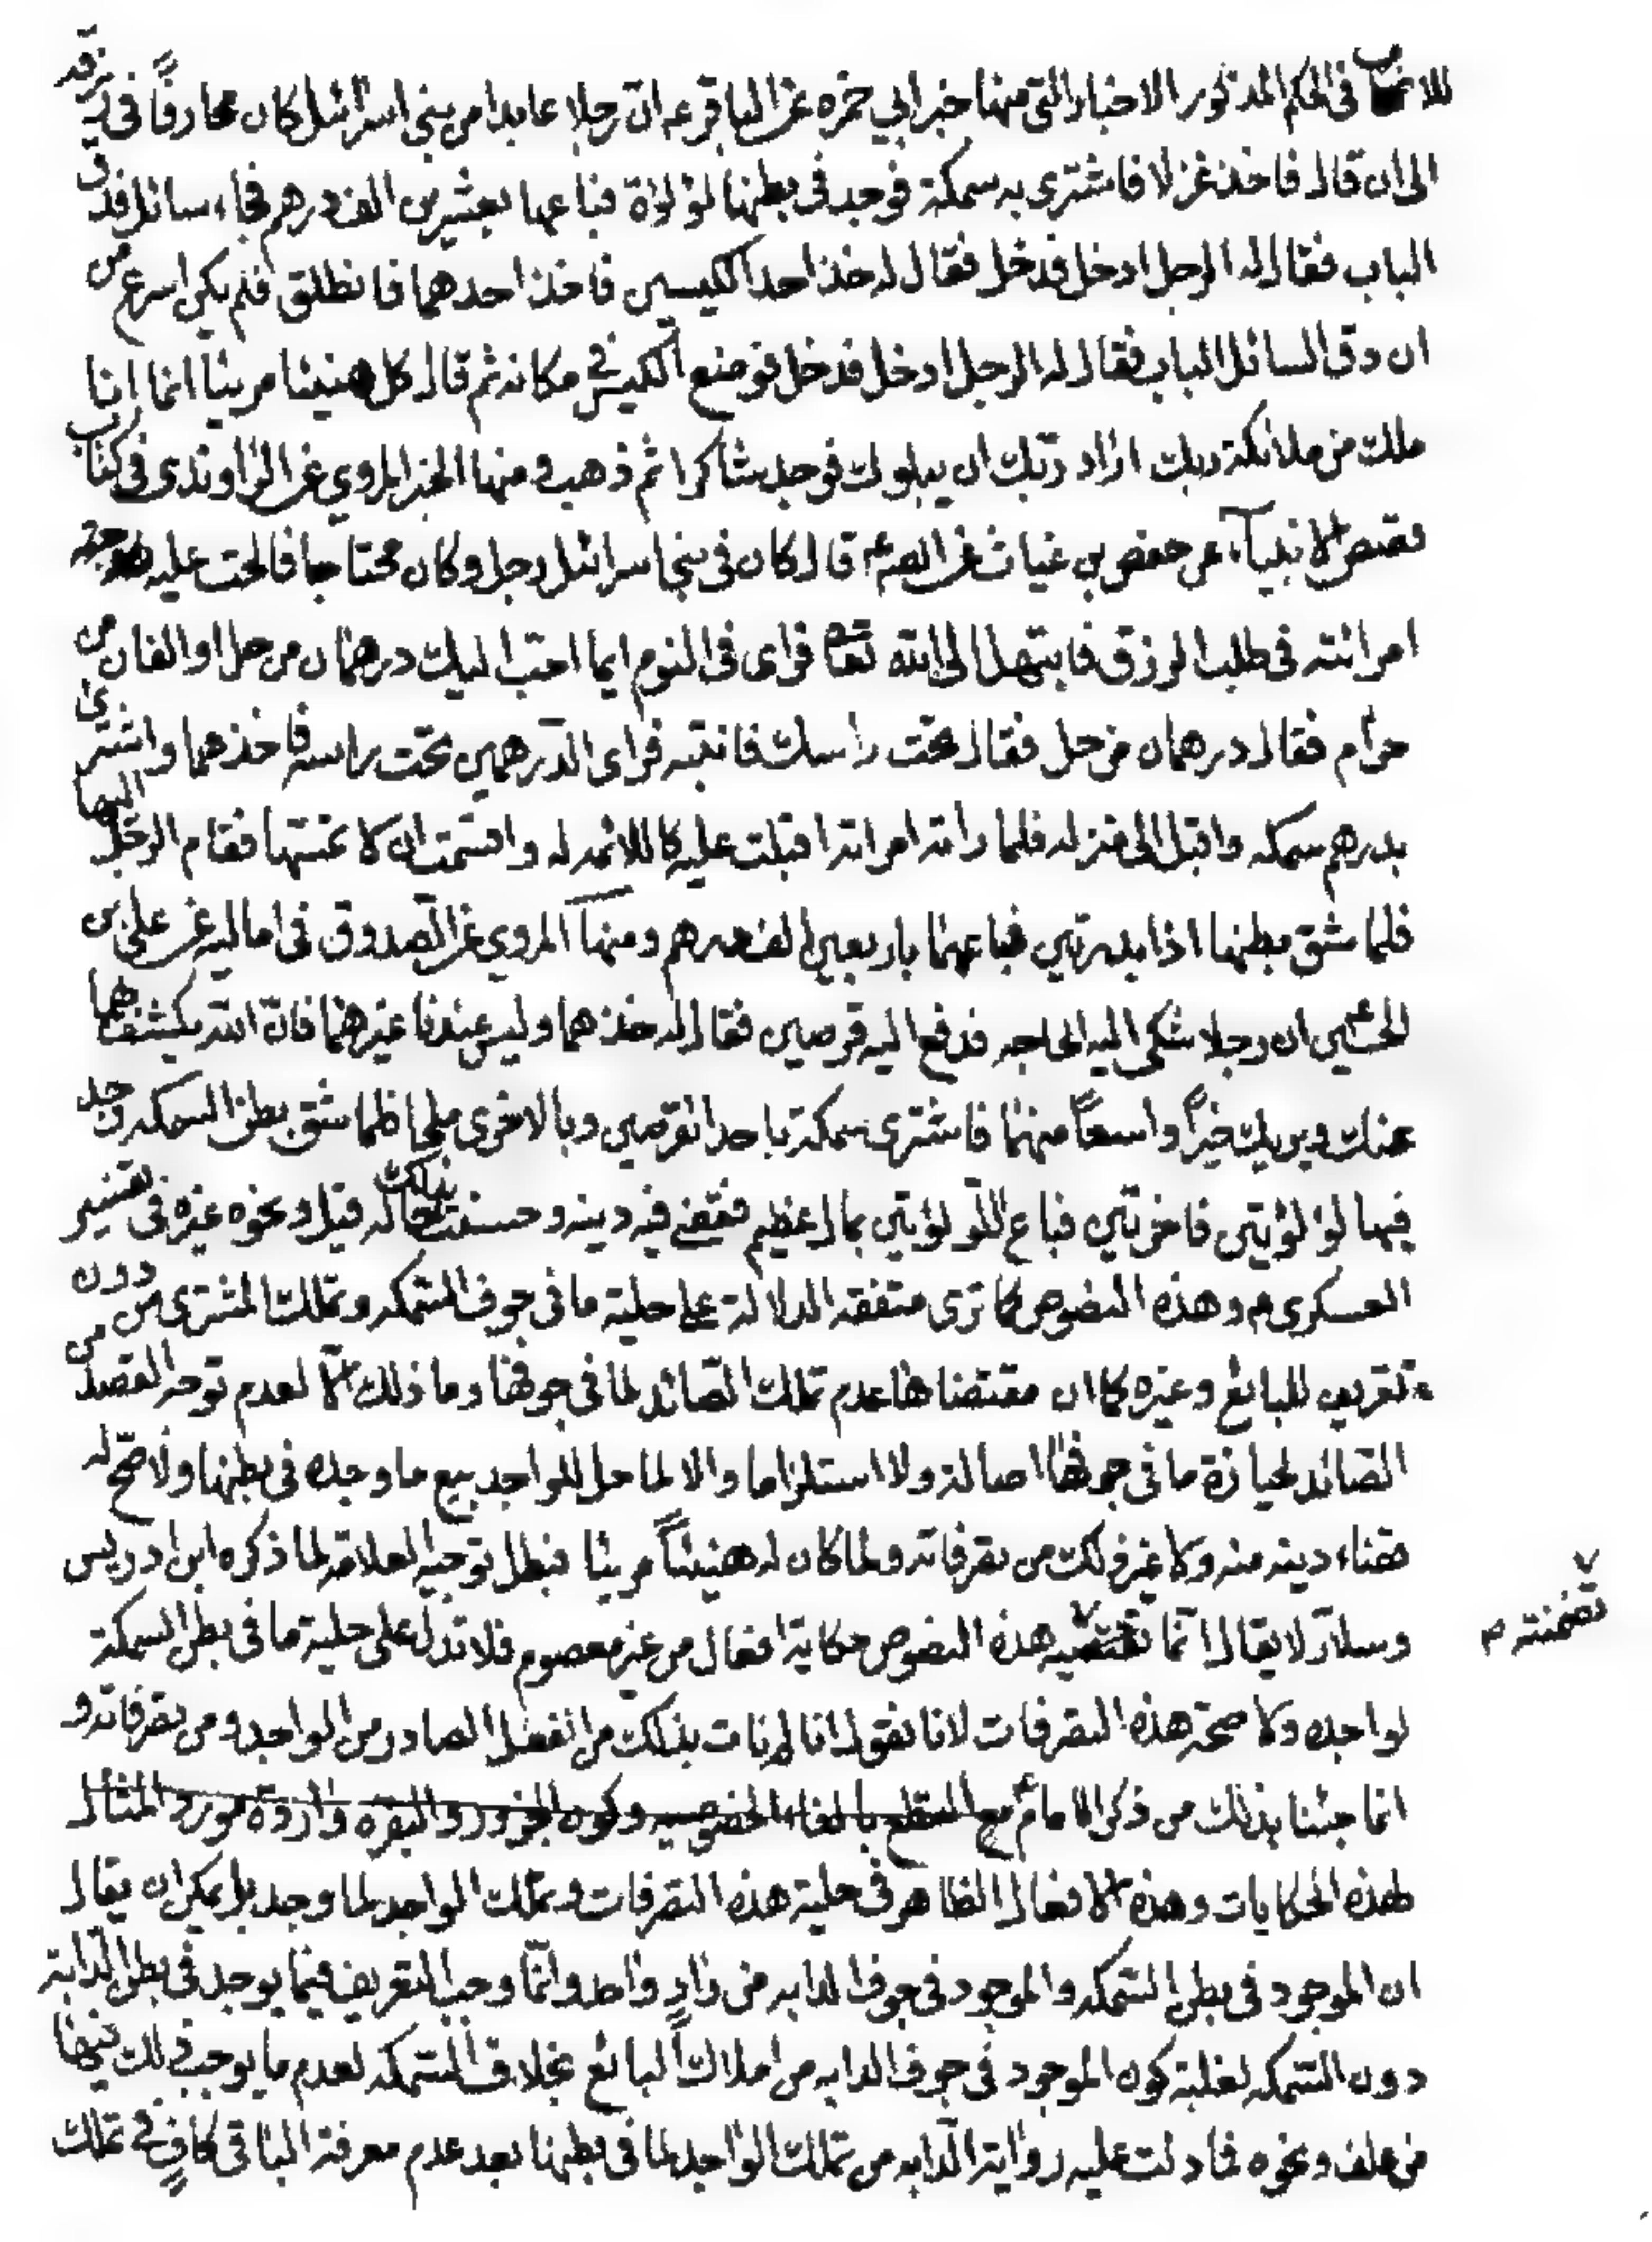 للاصحاب في الحكم المذكور الاخبار التي منها خبر ابي حمزه عن الباقر ع ان رجلا عابدا من بني اسرائيل كان محارفاً في رزقه
الى ان قال فاخذ غزلا فاشترى به سمكة فوجد في بطنها لؤلؤة فباعها بعشرين الف درهم فجاء سائل فدق
الباب فقال له الرجل ادخل فدخل فقال له خذ احد الكيسين فاخذ احدهما فانطلق فلم يكن اسرع من
ان دق السائل الباب فقال له الرجل ادخل فدخل فوضع الكيس في مكانه ثم قال كل هنيئا مريئا انما انا
ملك من ملائكة ربك اراد ربك ان يبلوك فوجدك شاكرا ثم ذهب ومنها الخبر المروي عن الراوندى في كتاب
قصص الانبيآء عن حفص بن غياث عن الصم قال كان في بني اسرائيل رجل وكان محتاجا فالحت عليه
امرائته في طلب الرزق فابتهل الى الله تعا فراى في النوم ايما احب اليك درهمان من حل او الفان من
حرام فقال درهمان من حل فقال تحت راسك فانتبه فراى الدرهمين تحت راسه فاخذهما واشترى
بدرهم سمكه واقبل الى منزله فلما راته امراته اقبلت عليه كاللائمه له واقسمت ان لا تمسها فقام الرجل اليها
فلما شق بطنها اذا بدرتين فباعهما باربعين الف درهم ومنها المروي عن الصدوق في اماليه عن علي بن
الحسين ان رجلا شكى اليه الحاجه فدفع اليه قرصين فقال له خذهما وليس عندنا غيرهما فان الله يكشف بهما
عنك ويريك خيراً واسعاً منهما فاشترى سمكة باحد القرصين وبالاخرى ملحا فلما شق بطن السمكه وجد
فيها لؤلؤتين فاخرتين فباع اللؤلؤتين بمال عظيم فقضى فيه دينه وحسنت بذلك حاله قيل ونحوه غيره في تفسير
العسكرى م وهذه النصوص كما ترى متفقه الدلالة على حلية ما في جوف السمكه وتملك المشترى من دون
تعريف للبايع وغيره كما ان مقتضاها عدم تملك الصائد لما في جوفها وما ذلك الا لعدم توجه القصد من
الصائد لحيازة ما في جوفها اصالة ولا استلزاما والا لما حل للواجد بيع ما وجده في بطنها ولا صح له
قضاء دينه منه ولا غير ذلك من تصرفاته ولما كان له هنيئاً مريئا فبطل توجيه العلامة لما ذكره ابن ادريس
وسلار لا يقال انما تضمنته هذه النصوص حكاية افعال من غير معصوم فلا تدل على حلية ما في بطن السمكة
تضمنته م
لواجده ولا صحة هذه التصرفات لانا نقول انا لم نات بذلك من الفعل الصادر من الواجد ومن تصرفاته و
انما جئنا بذلك من ذكر الامام ع مع القطع بالغاء الخصوصيه وكون الجزور والبقره واردة مورد المثال
لهذه الحكايات وهذه الافعال الظاهر في حلية هذه التصرفات وتملك الواجد لما وجد بل يمكن ان يقال
ان الموجود في بطن السمكه والموجود في جوف الدابه من وادٍ واحد وانما وجب التعريف فيما يوجد في بطن الدابة
دون السمكه لغلبة كون الموجود في جوف الدابه من املاك البائع بخلاف السمكه لعدم ما يوجب ذلك فيها
من علف ونحوه فما دلت عليه رواية الدابه من تملك الواجد لما في بطنها بعد عدم معرفة البائع كافٍ في تملك